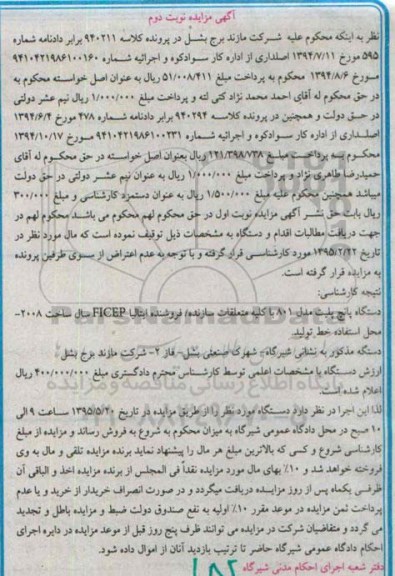 آگهی مزایده نوبت دوم
نظر به اینکه محکوم علیه شرکت مازند برج بشل در پرونده کلاسه ۹۴۰۲۱۱ برابر دادنامه شماره
۵۹۵ مورخ ۱۳۹۴/۷/۱۱ اصلداری از اداره کار سوادکوه و اجرائیه شماره ۹۴۱۰۴۲۱۹۸۶۱۰۰۱۶۰
مورخ ۱۳۹۴/۸/۶ محکوم به پرداخت مبلغ ۵۱/۰۰۸/۴۱۱ ریال به عنوان اصل خواسته محکوم به
در حق محکوم له آقای احمد محمد نژاد کتی لته و پرداخت مبلغ ۱/۰۰۰/۰۰۰ ریال نیم عشر دولتی
در حق دولت و همچنین در پرونده کلاسه ۹۴۰۲۹۴ برابر دادنامه شماره ۴۷۸ مورخ ۱۳۹۴/۶/۴
اصلداری از اداره کار سوادکوه و اجرائیه شماره ۹۴۱۰۴۲۱۹۸۶۱۰۰۲۳۱ مورخ ۱۳۹۴/۱۰/۱۷
محکوم به پرداخت مبلغ ۱۴۱/۳۹۸/۷۳۸ ریال بعنوان اصل خواسته در حق محکوم له آقای
حمیدرضا طاهری نژاد و پرداخت مبلغ ۱/۰۰۰/۰۰۰ ریال به عنوان نیم عشر دولتی در حق دولت
میباشد همچنین محکوم علیه مبلغ ۱/۵۰۰/۰۰۰ ریال به عنوان دستمزد کارشناسی و مبلغ ۳۰۰/۰۰۰
ریال بابت حق نشر آگهی مزایده نوبت اول در حق محکوم لهم محکوم می باشد محکوم لهم در
جهت دریافت مطالبات اقدام و دستگاه به مشخصات ذیل توقیف نموده است که مال مورد نظر در
تاریخ ۱۳۹۵/۲/۲۲ مورد کارشناسی قرار گرفته و با توجه به عدم اعتراض از سوی طرفین پرونده
به مزایده قرار گرفته است.
نتیجه کارشناسی:
دستگاه پانچ پلیت مدل ۸۰۱ با کلیه متعلقات سازنده/ فروشنده ایتالیا FICEP سال ساخت ۲۰۰۸-
محل استفاده خط تولید
دستگه مذکور به نشانی شیرگاه- شهرک صنعتی بشل- فاز ۲- شرکت مازند برج بشل
ارزش دستگاه با مشخصات اعلمی توسط کارشناس محترم دادگستری مبلغ ۴۰۰/۰۰۰/۰۰۰ ریال
اعلام شده است.
لذا این اجرا در نظر دارد دستگاه مورد نظر را از طریق مزایده در تاریخ ۱۳۹۵/۵/۲۰ ساعت ۹ الی
۱۰ صبح در محل دادگاه عمومی شیرگاه به میزان محکوم به شروع به فروش رساند و مزایده از مبلغ
کارشناسی شروع و کسی که بالاترین مبلغ هر مال را پیشنهاد نماید برنده مزایده تلقی و مال به وی
فروخته خواهد شد و ۱۰٪ بهای مال مورد مزایده نقداً فی المجلس از برنده مزایده اخذ و الباقی آن
ظرفی یکماه پس از روز مزایده دریافت میگردد و در صورت انصراف خریدار از خرید و یا عدم
پرداخت ثمن مزایده در موعد مقرر ۱۰٪ اولیه به نفع صندوق دولت ضبط و مزایده باطل و تجدید
می گردد و متقاضیان شرکت در مزایده می توانند ظرف پنج روز قبل از موعد مزایده در دایره اجرای
احکام دادگاه عمومی شیرگاه حاضر تا ترتیب بازدید آنان از اموال داده شود.
دفتر شعبه اجرای احکام مدنی شیرگاه